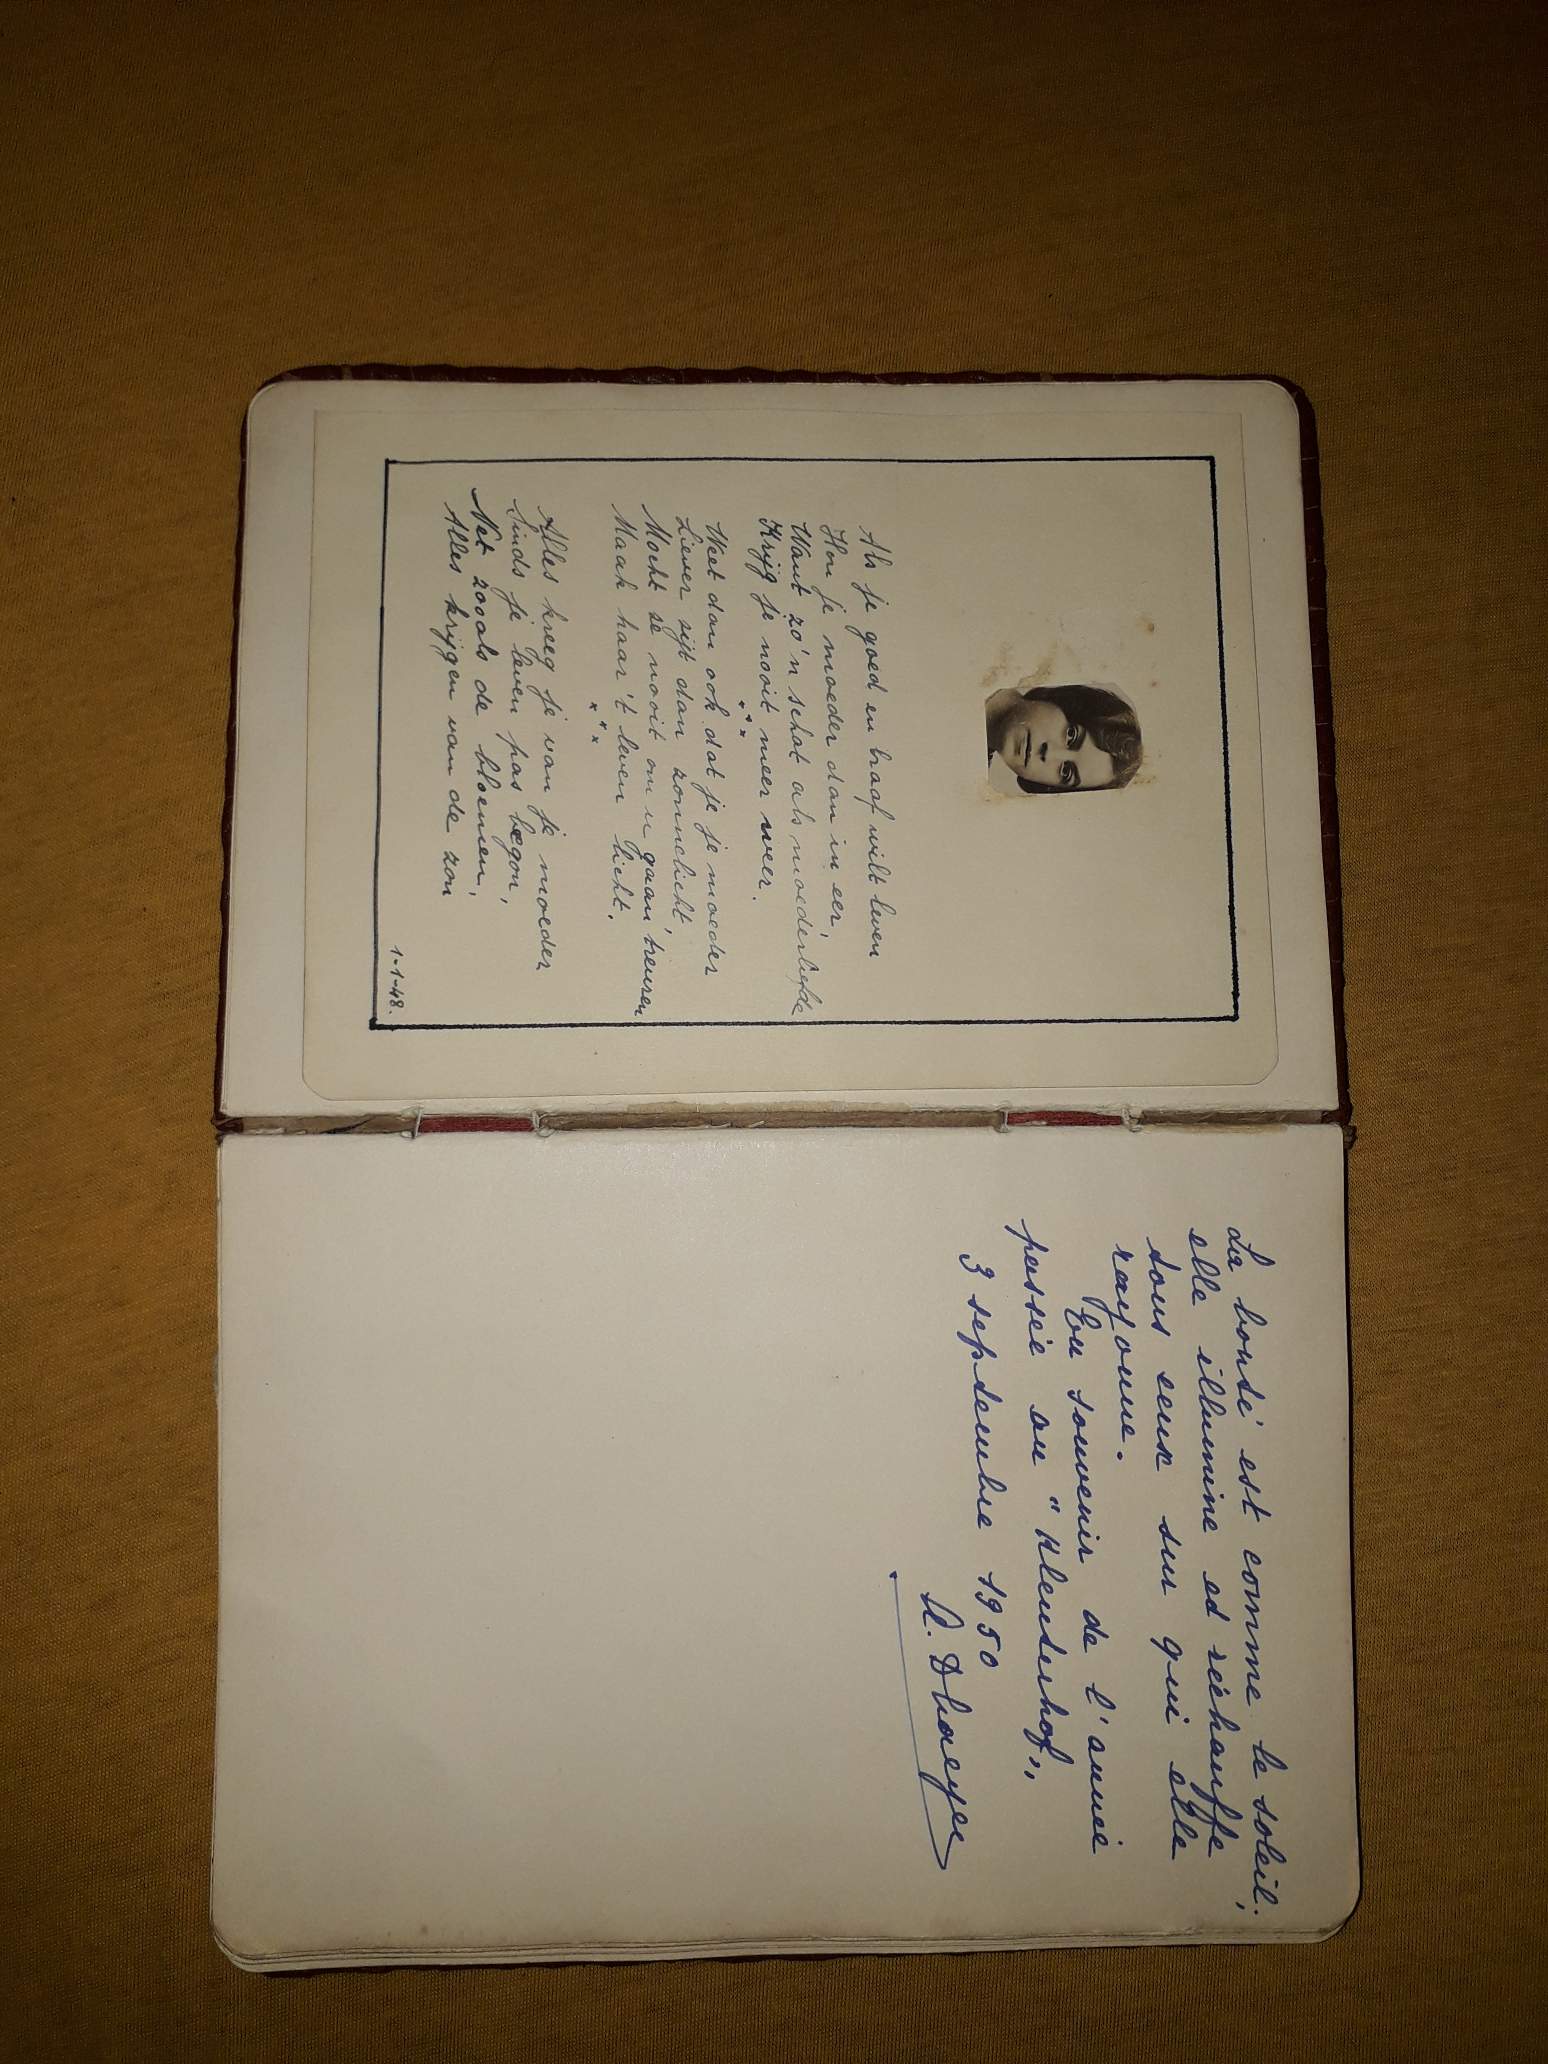 Als je goed en braaf wilt leven
Hou je moeder dan in eer,
Want zo'n schat als moederliefde
Krijg je nooit meer weer.
x x x
Weet dan ook dat je je moeder
Liever zijt dan zonnelicht
Mocht se nooit om u gaan treuren
Maak haar 't leven licht.
x x x
Alles kreeg je van je moeder
Sinds je leven pas begon,
Net zooals de bloemen,
Alles krijgen van de zon
1-1-48.
La bonté est comme le soleil;
elle illumine et réchauffe
tous ceux sur qui elle
rayonne.
En souvenir de l'année
passée au "Kleuterhof"
3 septembre 1950
Dhaeyer